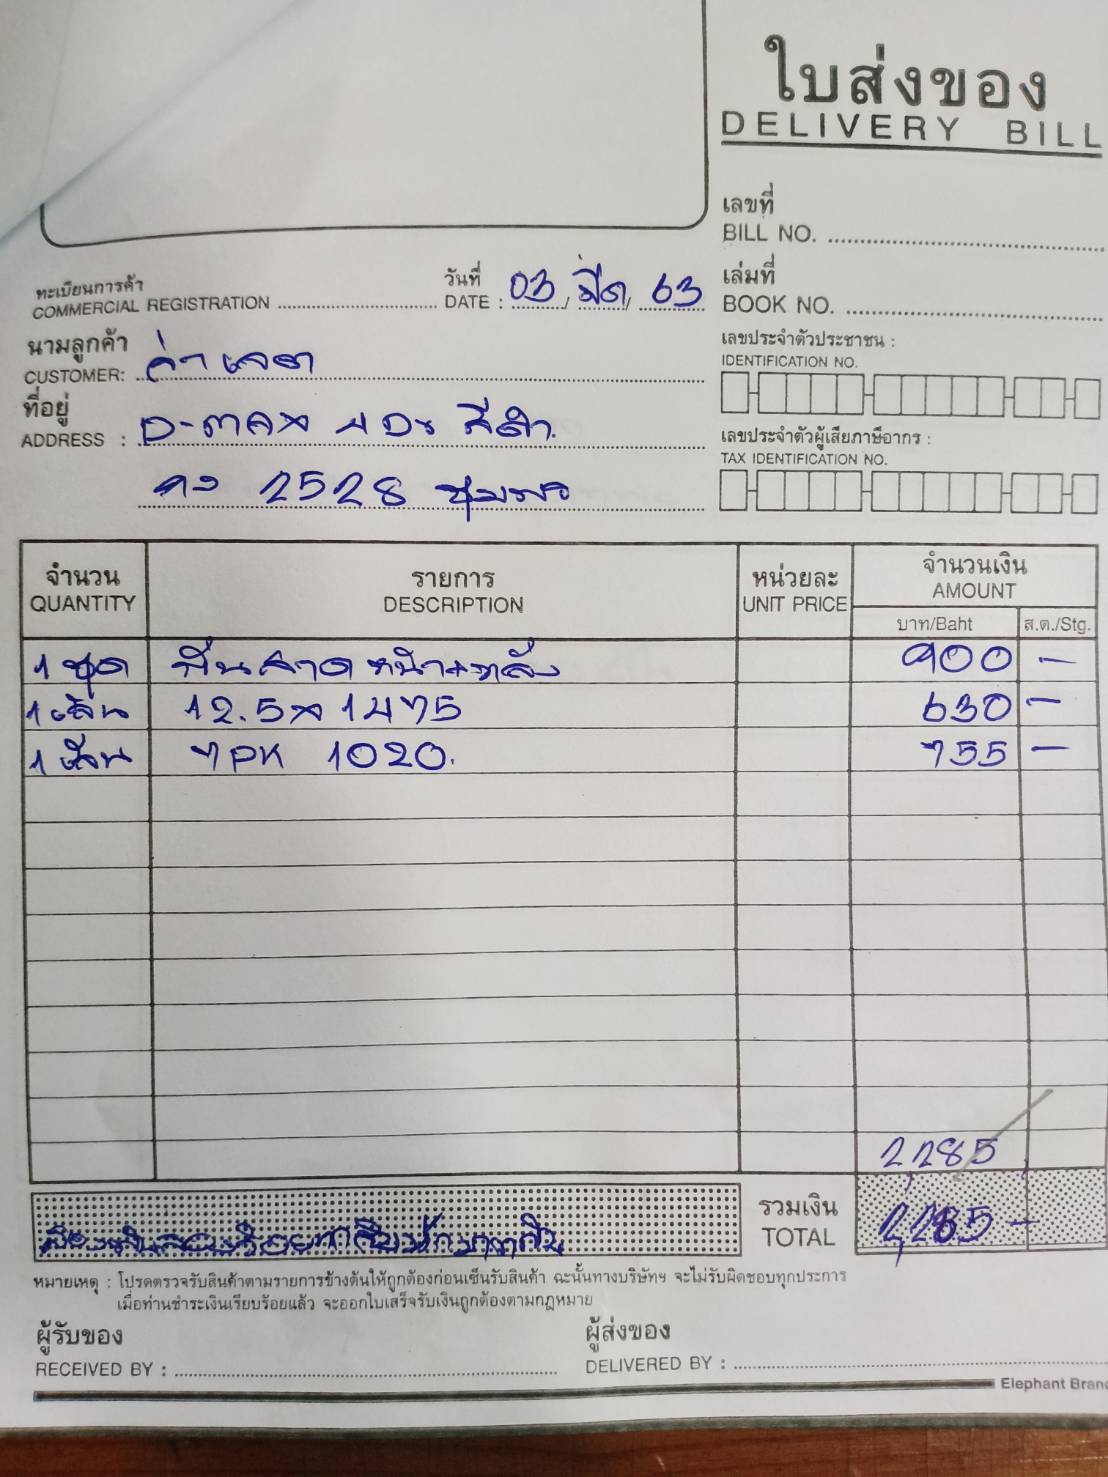 ใบส่งของ
DELIVERY BILL
เลขที่
BILL NO.
ทะเบียนการค้า
COMMERCIAL REGISTRATION
วันที่
DATE : 03 / มีค / 63
เล่มที่
BOOK NO.
นามลูกค้า
CUSTOMER:
เลขประจำตัวประชาชน :
IDENTIFICATION NO.
ที่อยู่
ADDRESS :
เลขประจำตัวผู้เสียภาษีอากร :
TAX IDENTIFICATION NO.
2528 ชุมพร
จำนวน รายการ หน่วยละ จำนวนเงิน
QUANTITY DESCRIPTION UNIT PRICE AMOUNT
บาท/Baht ส.ต./Stg.
1 ชุด หน้า+หลัง 900 -
1 เส้น 12.5 x 1475 630 -
1 เส้น 7PK 1020. 755 -
2,285
รวมเงิน
TOTAL 2,285 -
สองพันสองร้อยแปดสิบห้าบาทถ้วน
หมายเหตุ : โปรดตรวจรับสินค้าตามรายการข้างต้นให้ถูกต้องก่อนเซ็นรับสินค้า ฉะนั้นทางบริษัทฯ จะไม่รับผิดชอบทุกประการ
เมื่อท่านชำระเงินเรียบร้อยแล้ว จะออกใบเสร็จรับเงินถูกต้องตามกฎหมาย
ผู้รับของ
RECEIVED BY :
ผู้ส่งของ
DELIVERED BY :
Elephant Brand